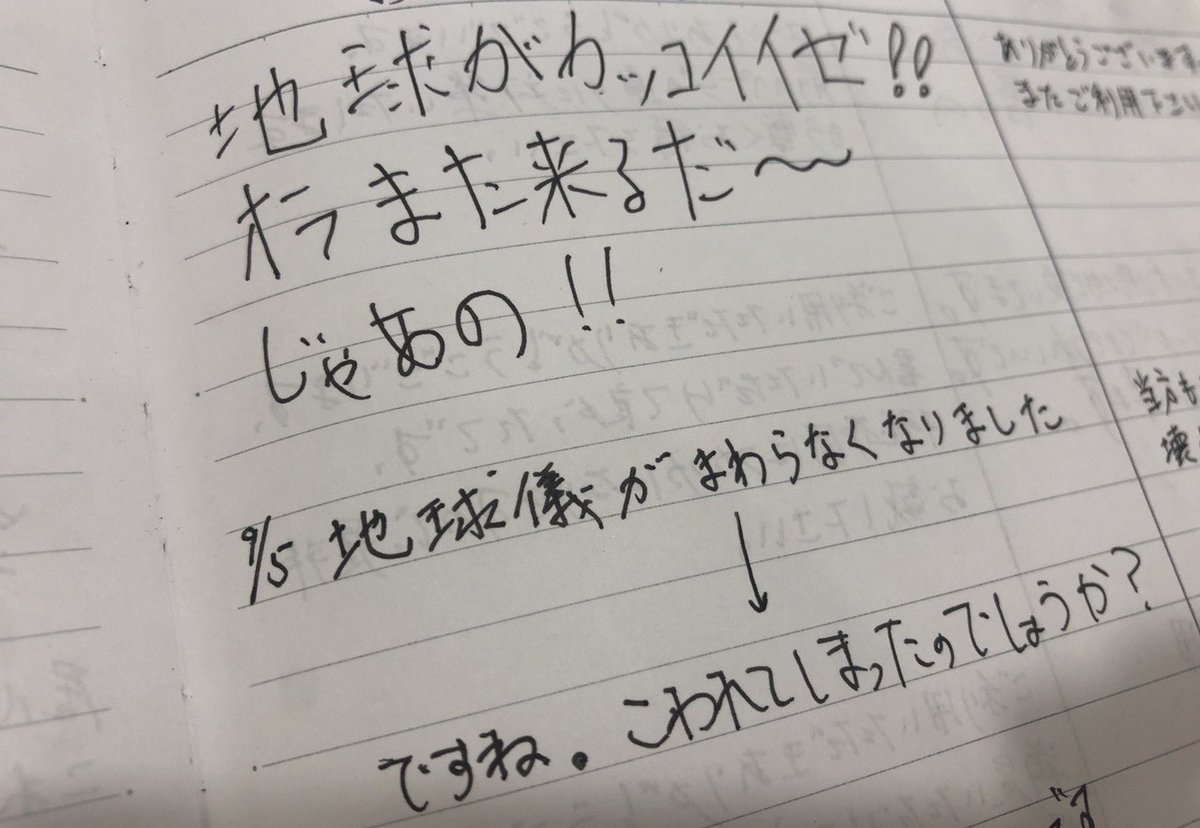 地球がカッコイイゼ!!
オラまた来るだ〜
じゃあの!!
9/5 地球儀がまわらなくなりました
↓
ですね。こわれてしまったのでしょうか?
ありがとうございます
またご利用下さい
当方も
壊